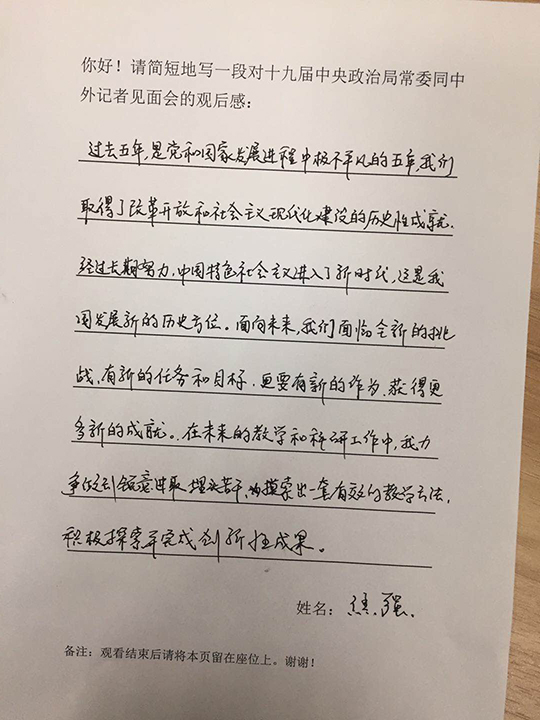 你好！请简短地写一段对十九届中央政治局常委同中
外记者见面会的观后感：
过去五年,是党和国家发展进程中极不平凡的五年,我们
取得了改革开放和社会主义现代化建设的历史性成就.
经过长期努力,中国特色社会主义进入了新时代,这是我
国发展新的历史方位。面向未来,我们面临全新的挑
战,有新的任务和目标,更要有新的作为,获得更
多新的成就。在未来的教学和科研工作中,我力
争做到锐意进取,埋头苦干,为摸索出一套有效的教学方法,
积极探索并完成创新性成果。
姓名：强.
备注：观看结束后请将本页留在座位上。谢谢！